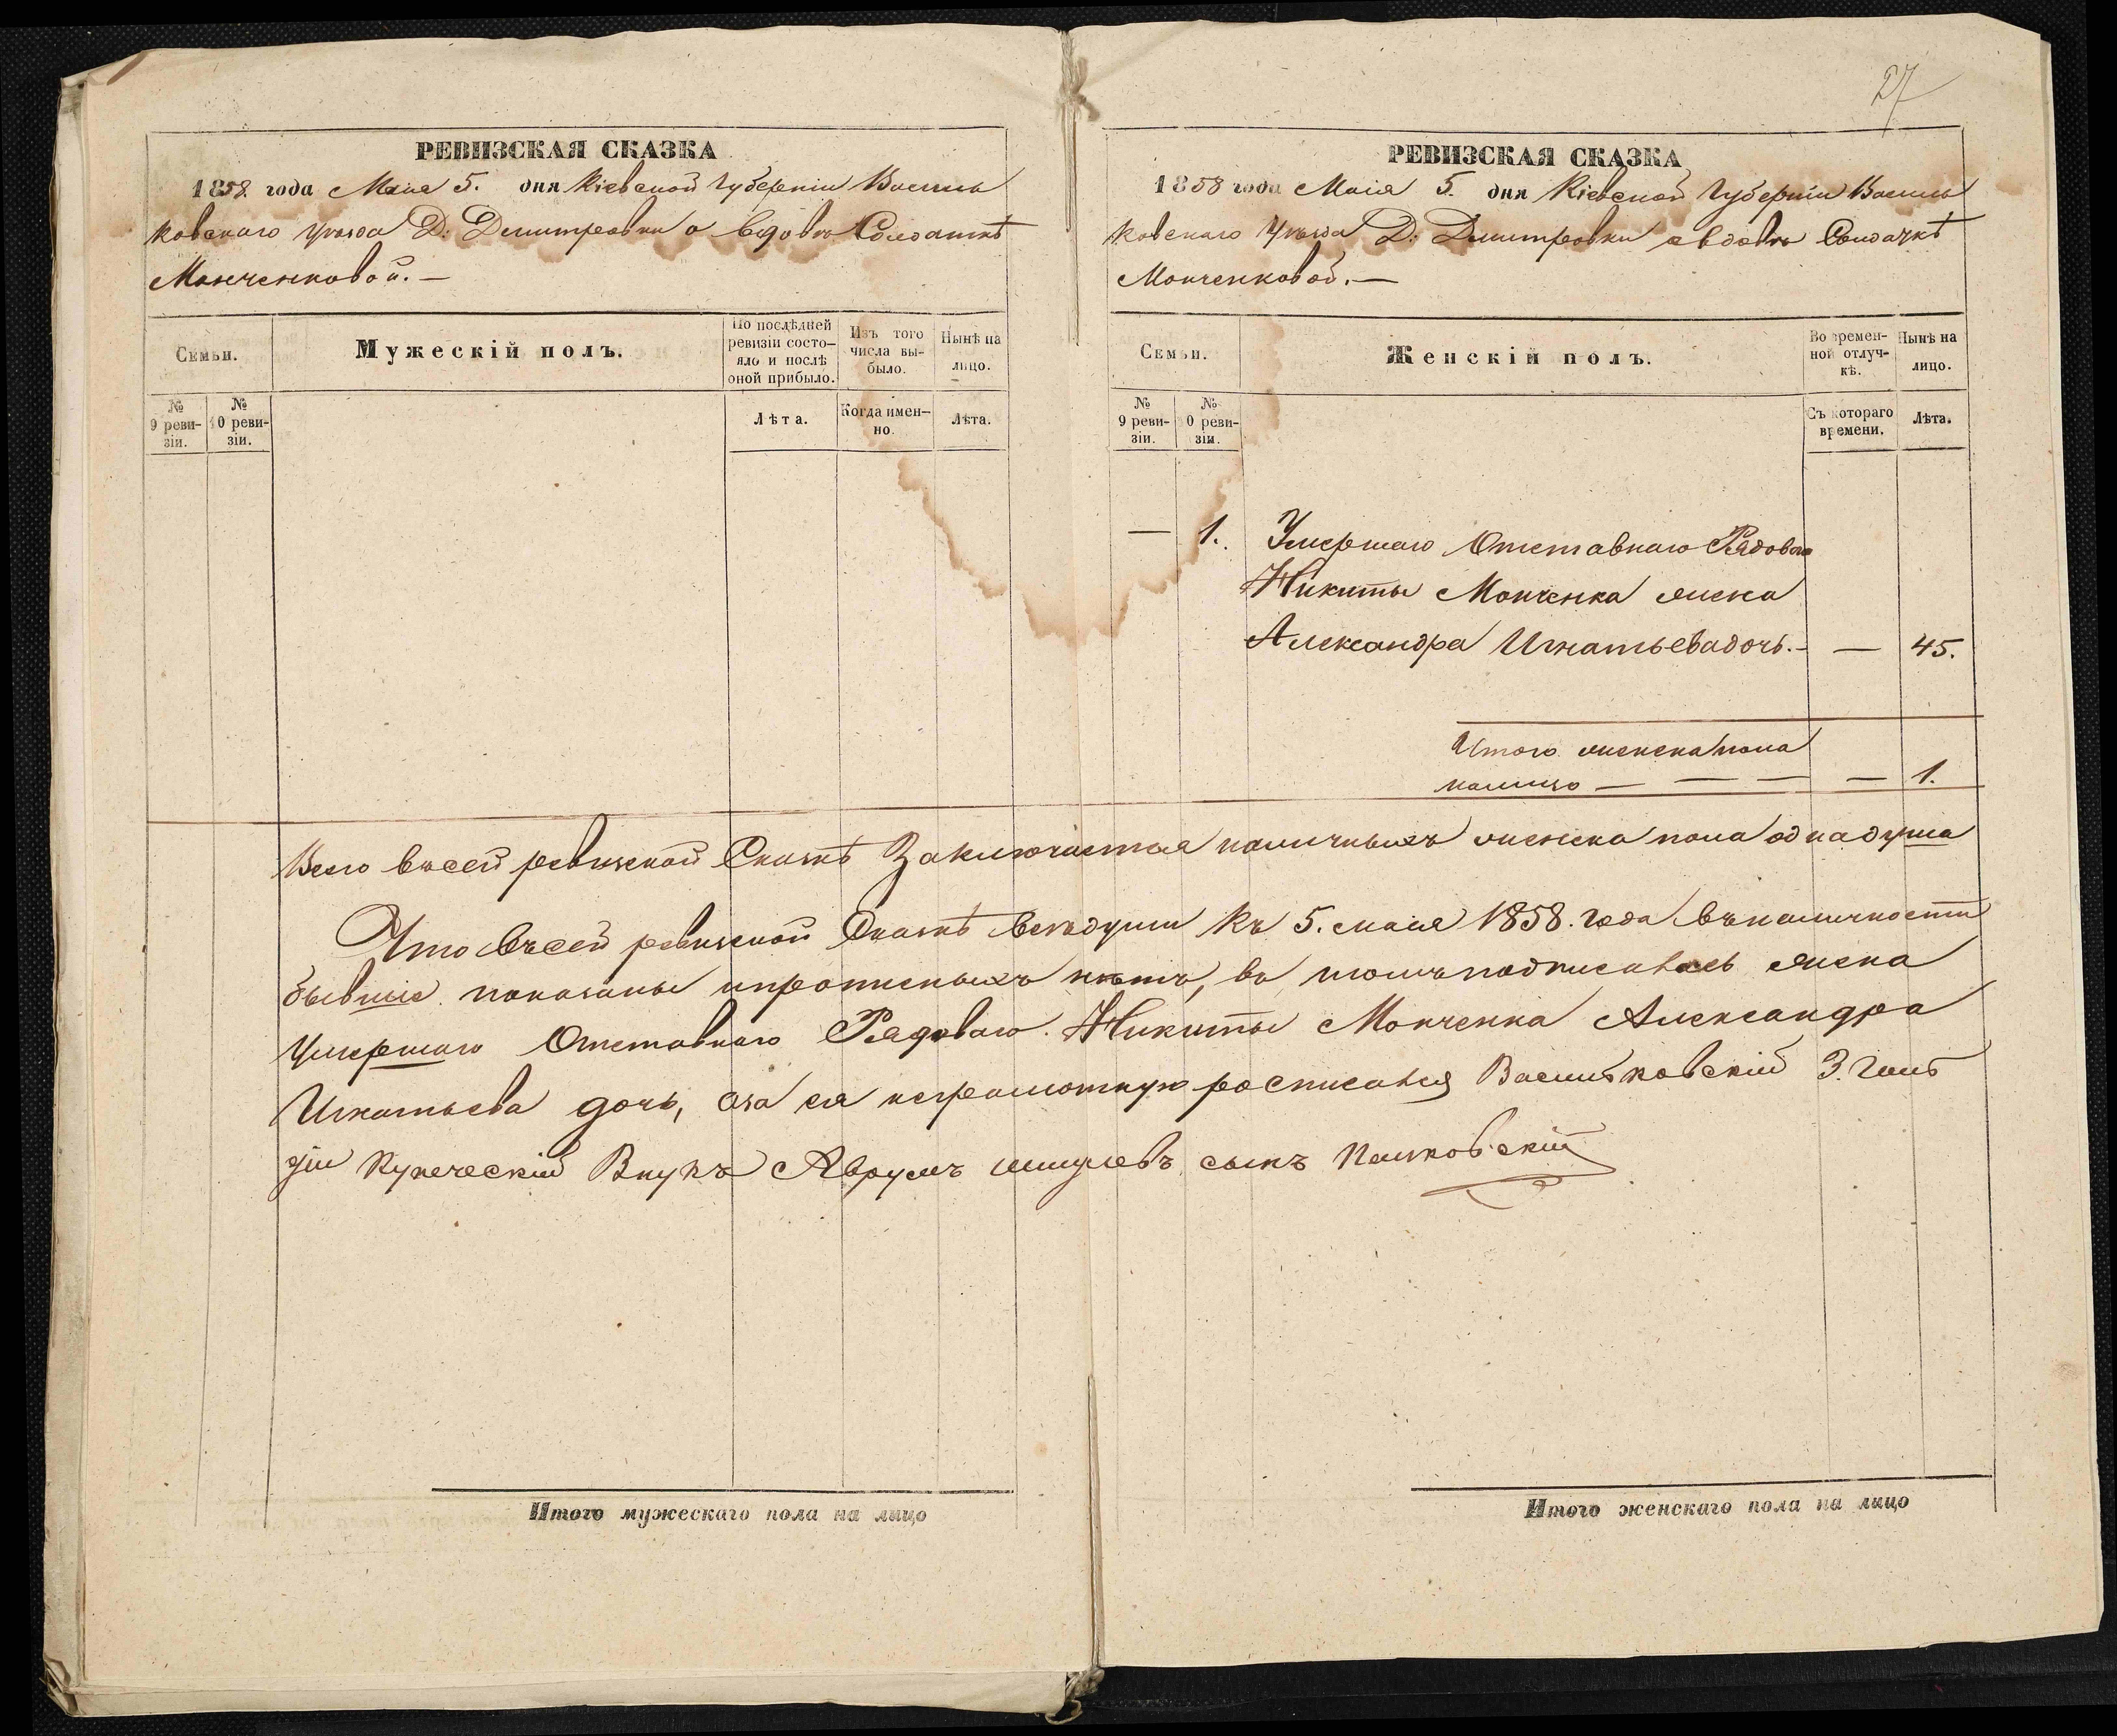 27
РЕВИЗСКАЯ СКАЗКА
1858. года Маія 5. дня Кіевской Губерніи Василь
ковскаго уѣзда Д: Дмитровки о вдовѣ Солдаткѣ
Монченковой. —
Семьи.
Мужескій полъ.
По послѣдней
ревизіи состо-
яло и послѣ
оной прибыло.
Изъ того
числа вы-
было.
Нынѣ на
лицо.
№
9 реви-
зіи.
№
10 реви-
зіи.
Лѣта.
Когда имен-
но.
Лѣта.
РЕВИЗСКАЯ СКАЗКА
1858 года Маія 5. дня Кіевской Губерніи Василь
ковскаго Уѣзда Д: Дмитровки о вдовѣ Солдачкѣ
Монченковой. —
Семьи.
Женскій полъ.
Во времен-
ной отлуч-
кѣ.
Нынѣ на
лицо.
№
9 реви-
зіи.
№
10 реви-
зіи.
Съ котораго
времени.
Лѣта.
— 1. Умершаго Отставнаго Рядоваго
Никиты Монченка жена
Александра Игнатьева дочь. — — 45.
Итого женска пола
налицо — — — — 1.
Всего въ сей ревизской Сказкѣ Заключается наличныхъ женска пола одна душа
Что въ сей ревизской Сказкѣ всѣ души къ 5. маія 1858. года въ наличности
бывшіе показаны и прописныхъ нѣтъ, въ томъ подписалась жена
умершаго Отставнаго Рядоваго Никиты Монченка Александра
Игнатьева дочь, а за ея неграмотную росписался Васильковскій 3. Гиль
діи Купеческій Внукъ Аврумъ сынъ
Итого мужескаго пола на лицо
Итого женскаго пола на лицо